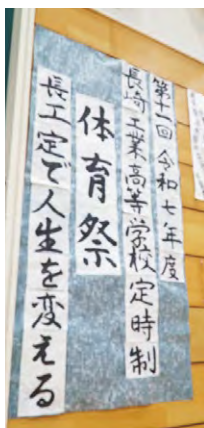 第十一回 令和七年度
長崎工業高等学校定時制
体育祭
長工定で人生を変える